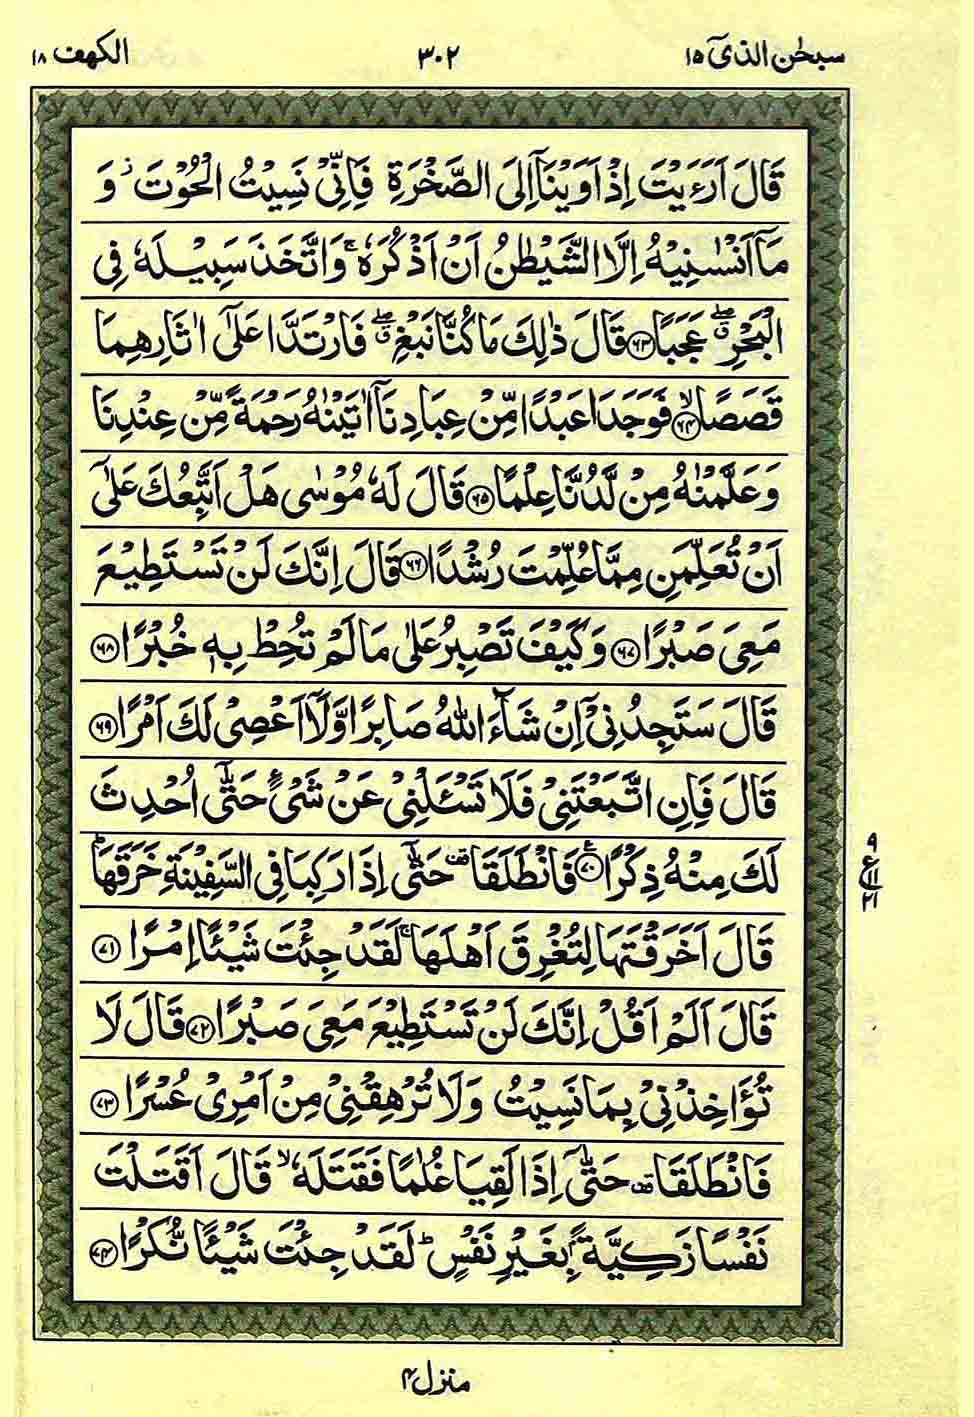 سبحٰن الذیٓ ۱۵ ۳۰۲ الکهف ۱۸
قَالَ اَرَءَیْتَ اِذْ اَوَیْنَاۤ اِلَی الصَّخْرَةِ فَاِنِّیْ نَسِیْتُ الْحُوْتَ ۫ وَ
مَاۤ اَنْسٰىنِیْهُ اِلَّا الشَّیْطٰنُ اَنْ اَذْكُرَهٗ ۚ وَاتَّخَذَ سَبِیْلَهٗ فِی
الْبَحْرِ ۖۗ عَجَبًا ﴿۶۳﴾ قَالَ ذٰلِكَ مَا كُنَّا نَبْغِ ۖۗ فَارْتَدَّا عَلٰۤی اٰثَارِهِمَا
قَصَصًا ۙ﴿۶۴﴾ فَوَجَدَا عَبْدًا مِّنْ عِبَادِنَاۤ اٰتَیْنٰهُ رَحْمَةً مِّنْ عِنْدِنَا
وَعَلَّمْنٰهُ مِنْ لَّدُنَّا عِلْمًا ﴿۶۵﴾ قَالَ لَهٗ مُوْسٰی هَلْ اَتَّبِعُكَ عَلٰۤی
اَنْ تُعَلِّمَنِ مِمَّا عُلِّمْتَ رُشْدًا ﴿۶۶﴾ قَالَ اِنَّكَ لَنْ تَسْتَطِیْعَ
مَعِیَ صَبْرًا ﴿۶۷﴾ وَكَیْفَ تَصْبِرُ عَلٰی مَا لَمْ تُحِطْ بِهٖ خُبْرًا ﴿۶۸﴾
قَالَ سَتَجِدُنِیْۤ اِنْ شَآءَ اللّٰهُ صَابِرًا وَّلَاۤ اَعْصِیْ لَكَ اَمْرًا ﴿۶۹﴾
قَالَ فَاِنِ اتَّبَعْتَنِیْ فَلَا تَسْـَٔلْنِیْ عَنْ شَیْءٍ حَتّٰۤی اُحْدِثَ
لَكَ مِنْهُ ذِكْرًا ﴿۷۰﴾ فَانْطَلَقَا ۥ حَتّٰۤی اِذَا رَكِبَا فِی السَّفِیْنَةِ خَرَقَهَا ؕ
۹ ع ۱۱ ۲۱
قَالَ اَخَرَقْتَهَا لِتُغْرِقَ اَهْلَهَا ۚ لَقَدْ جِئْتَ شَیْـًٔا اِمْرًا ﴿۷۱﴾
قَالَ اَلَمْ اَقُلْ اِنَّكَ لَنْ تَسْتَطِیْعَ مَعِیَ صَبْرًا ﴿۷۲﴾ قَالَ لَا
تُؤَاخِذْنِیْ بِمَا نَسِیْتُ وَلَا تُرْهِقْنِیْ مِنْ اَمْرِیْ عُسْرًا ﴿۷۳﴾
فَانْطَلَقَا ۥ حَتّٰۤی اِذَا لَقِیَا غُلٰمًا فَقَتَلَهٗ ۙ قَالَ اَقَتَلْتَ
نَفْسًا زَكِیَّةًۢ بِغَیْرِ نَفْسٍ ؕ لَقَدْ جِئْتَ شَیْـًٔا نُّكْرًا ﴿۷۴﴾
منزل ۴